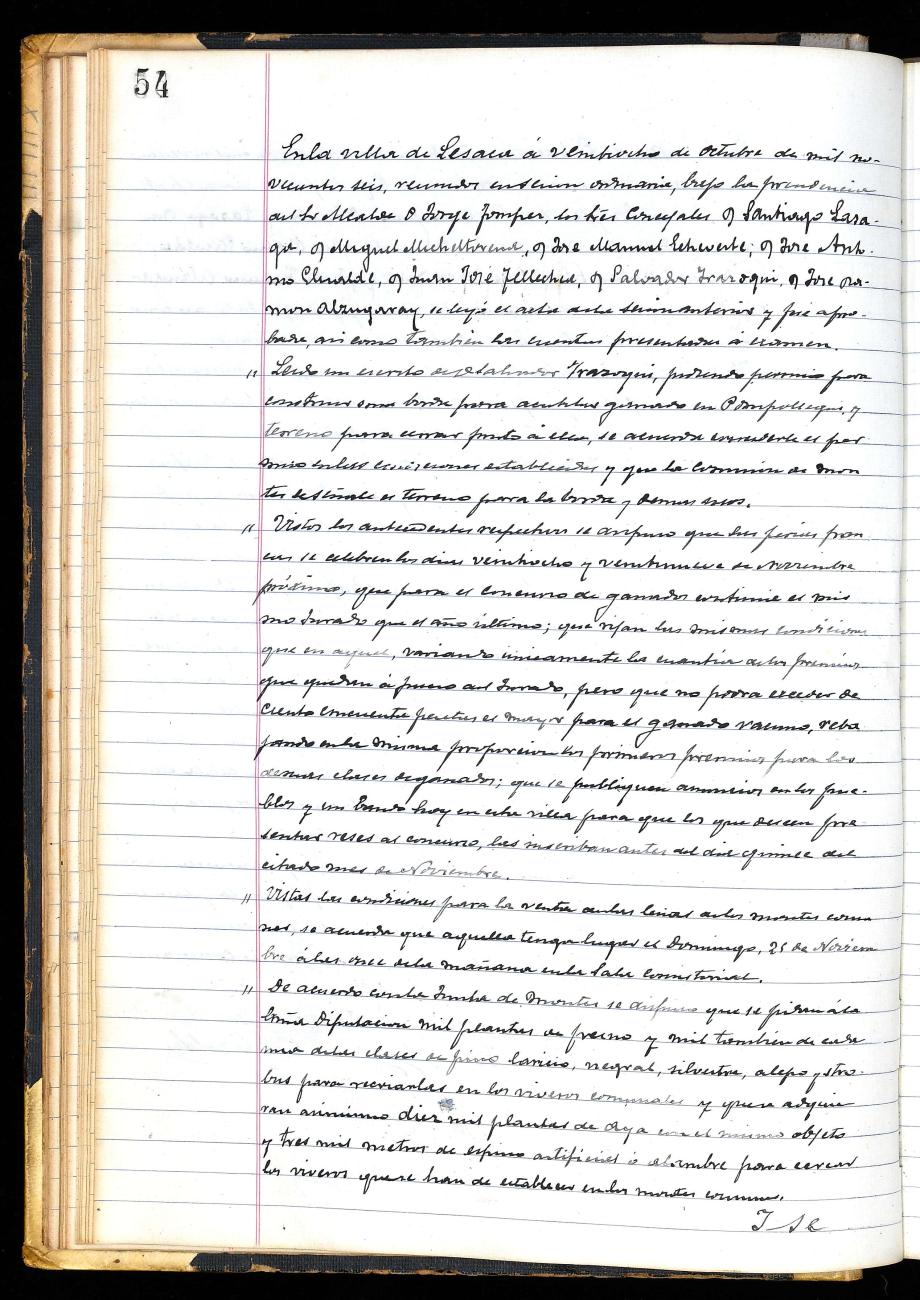 54
En la villa de Lesaca á veintiocho de Octubre de mil no-
vecientos seis, reunidos en sesion ordinaria, bajo la presidencia
del Sr Alcalde D Jorge Jomper, los Sres Concejales Dn Santiago Lasa-
ga, Dn Miguel Micheltorena, Dn Jose Manuel Echeverte; Dn Jose Anto-
nio Elizalde, Dn Juan José Tellechea, Dn Salvador Irazoqui, Dn Jose Ra-
mon Alzugaray, se leyó el acta de la sesion anterior y fue apro-
bada, asi como también las cuentas presentadas á examen.
" Leido un escrito de Salvador Irazoqui, pidiendo permiso para
construir una borda para acubilar ganado en Pompollegui, y
terreno para cerrar junto á ella, se acuerda concederle el per
miso en las condiciones establecidas y que la Comision de mon
tes le señale el terreno para la borda y demas usos.
" Vistos los antecedentes respectivos se dispuso que las ferias fran
cas se celebren los dias veintiocho y veintinueve de Noviembre
próximo, que para el concurso de ganados continúe el mis
mo Jurado que el año último; que rijan las mismas condiciones
que en aquel, variando únicamente la cuantía de los premios
que quedan á juicio del Jurado, pero que no podra exceder de
ciento cincuenta pesetas el mayor para el ganado vacuno, reba
jando en la misma proporcion los primeros premios para las
demas clases de ganados; que se publiquen anuncios en los pue-
blos y un bando hoy en esta villa para que los que deseen pre
sentar reses al concurso, las inscriban antes del dia quince del
citado mes de Noviembre.
" Vistas las condiciones para la venta de las leñas de los montes comu
nes, se acuerda que aquella tenga lugar el Domingo, 25 de Noviem
bre á las once de la mañana en la Sala Consistorial.
" De acuerdo con la Junta de Montes se dispuso que se pidan á la
Exma Diputacion mil plantas de fresno y mil también de cada
una de las clases de pino laricio, negral, silvestre, alepo y stro-
bus para recriarlas en los viveros comunales y que se adquie
ran asimismo diez mil plantas de aya con el mismo objeto
y tres mil metros de espino artificial ó alambre para cercar
los viveros que se han de establecer en los montes comunes.
I se